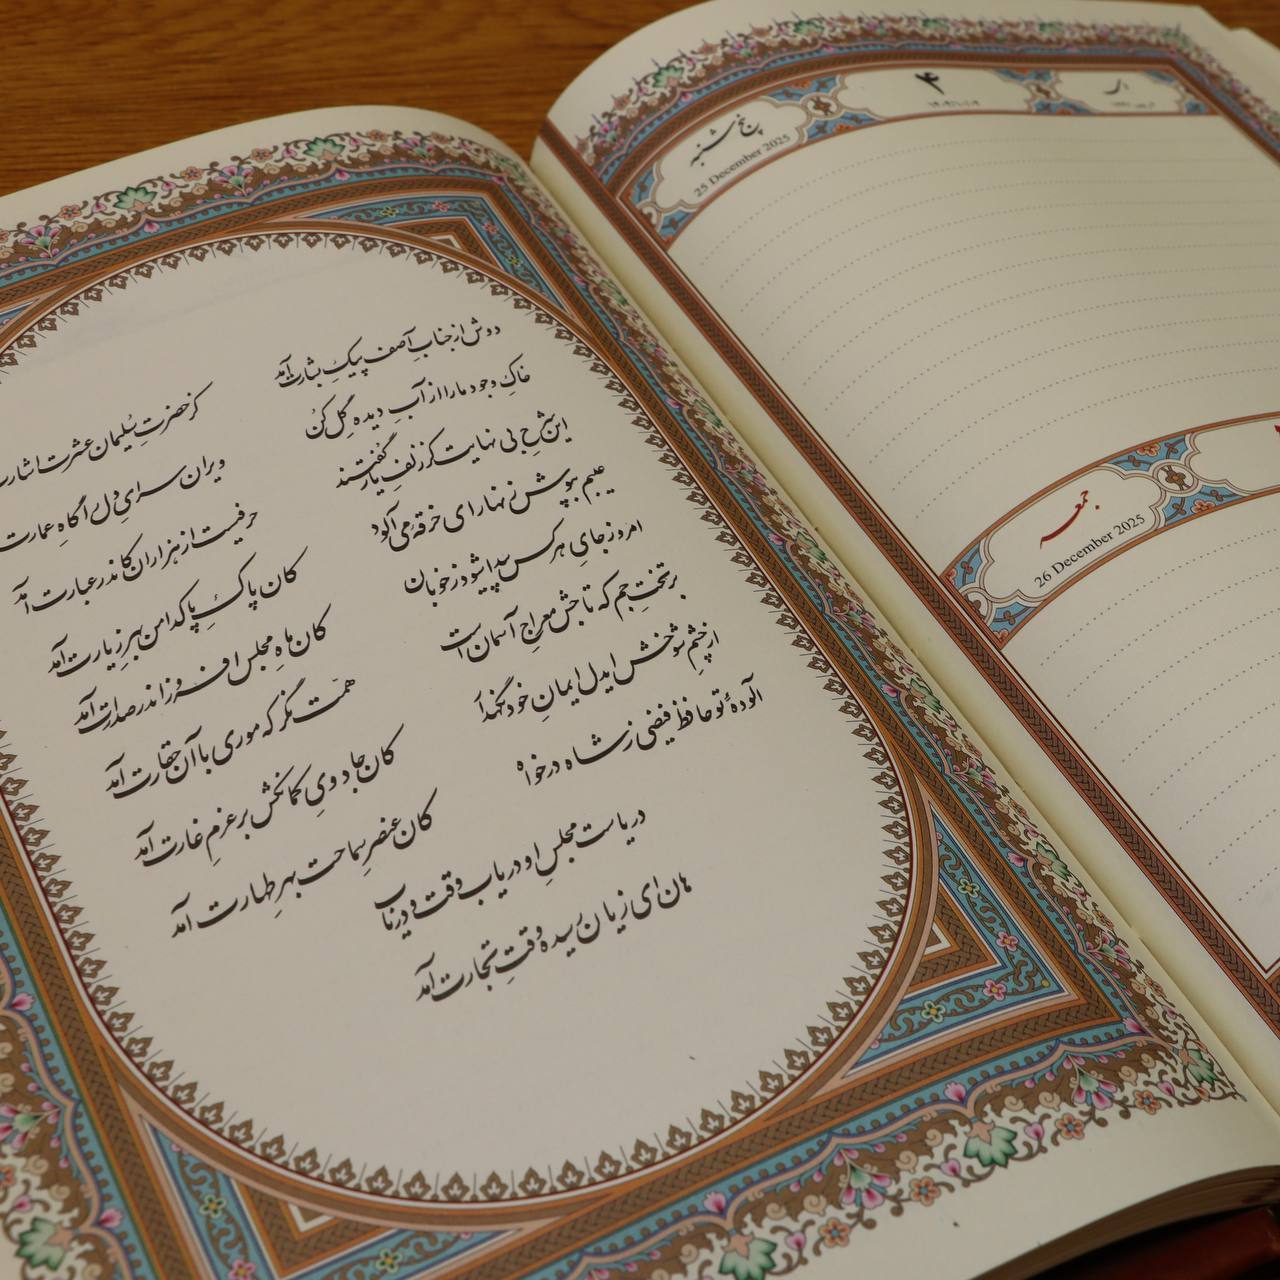 دوش از جناب آصف پیکِ بشارت آمد
کز حضرتِ سُلیمان عشرت اشارت
خاکِ وجود ما را از آبِ دیده گِل کُن
ویران سرایِ دل را گاهِ عمارت
این شرحِ بی نهایت کز زلفِ یار گفتند
حرفیست از هزاران کاندر عبارت آمد
عیبم بپوش زنهار ای خرقهٔ می آلود
کان پاکِ پاکدامن بهرِ زیارت آمد
امروز جایِ هر کس پیدا شود ز خوبان
کان ماهِ مجلس افروز اندر صدارت آمد
بر تختِ جم که تاجش معراجِ آسمان است
همّت نگر که موری با آن حقارت آمد
از چشمِ شوخش ای دل ایمانِ خود نگهدار
کان جادویِ کمانکش بر عزمِ غارت آمد
آلودهٔ تو حافظ فیضی ز شاه درخواه
کان عنصرِ سماحت بهرِ طهارت آمد
دریاست مجلسِ او دریاب وقت و دُر یاب
هان ای زیان رسیده وقتِ تجارت آمد
۴
پنج شنبه
25 December 2025
جمعه
26 December 2025